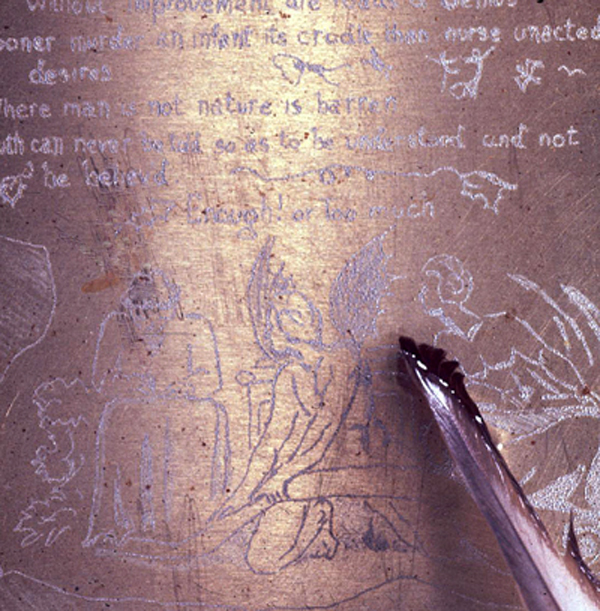 without improvement are roads of Genius
ooner murder an infant its cradle than nurse unacted
desires
here man is not nature is barren
uth can never be told so as to be understood and not
be believd
Enough! or Too much